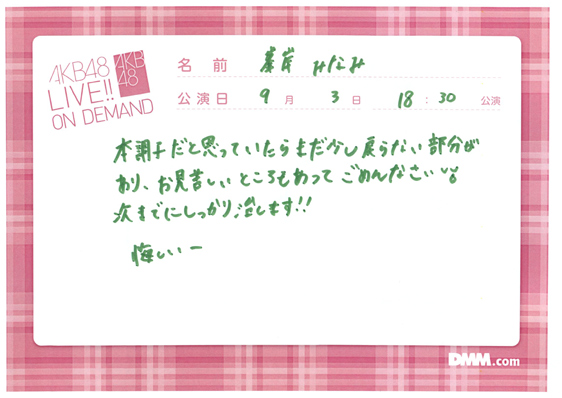 AKB48
LIVE!!
ON DEMAND
AKB
48
名前 みなみ
公演日 9月 3日 18:30 公演
本調子だと思っていたらまだ少し戻らない部分が
あり、お見苦しいところもあって ごめんなさい
次までにしっかり治します!!
悔しいー
DMM.com